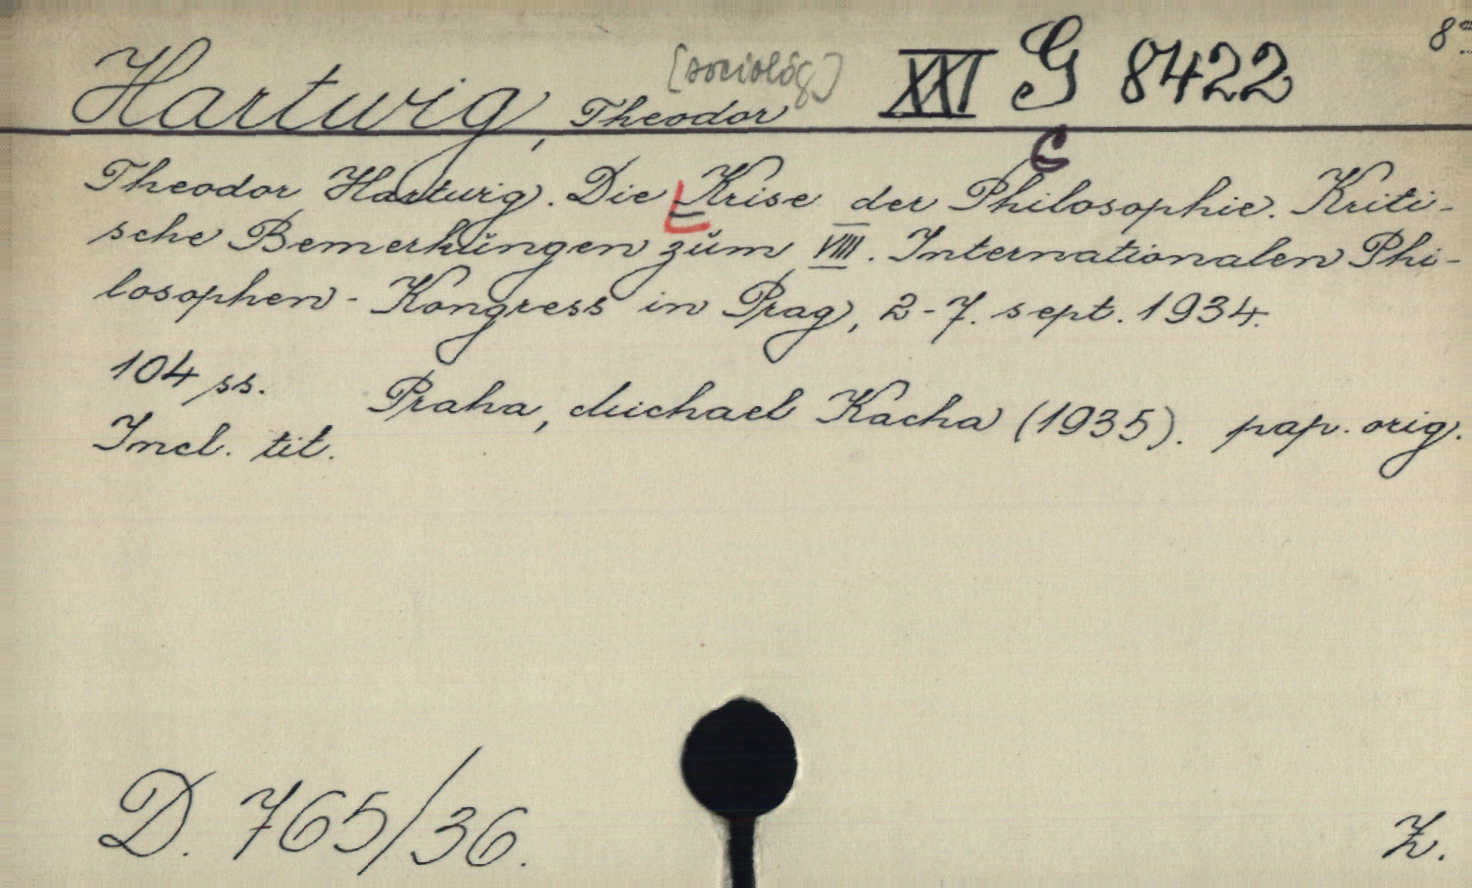 Hartwig, Theodor [sociológ] XXI G 8422 8°
C
Theodor Hartwig. Die Krise der Philosophie. Kriti-
sche Bemerkŭngen zŭm VIII. Internationalen Phi-
losophen-Kongress in Prag, 2-7. sept. 1934.
104 ss. Praha, Michael Kacha (1935). pap. orig.
Incl. tit.
D. 765/36. Z.